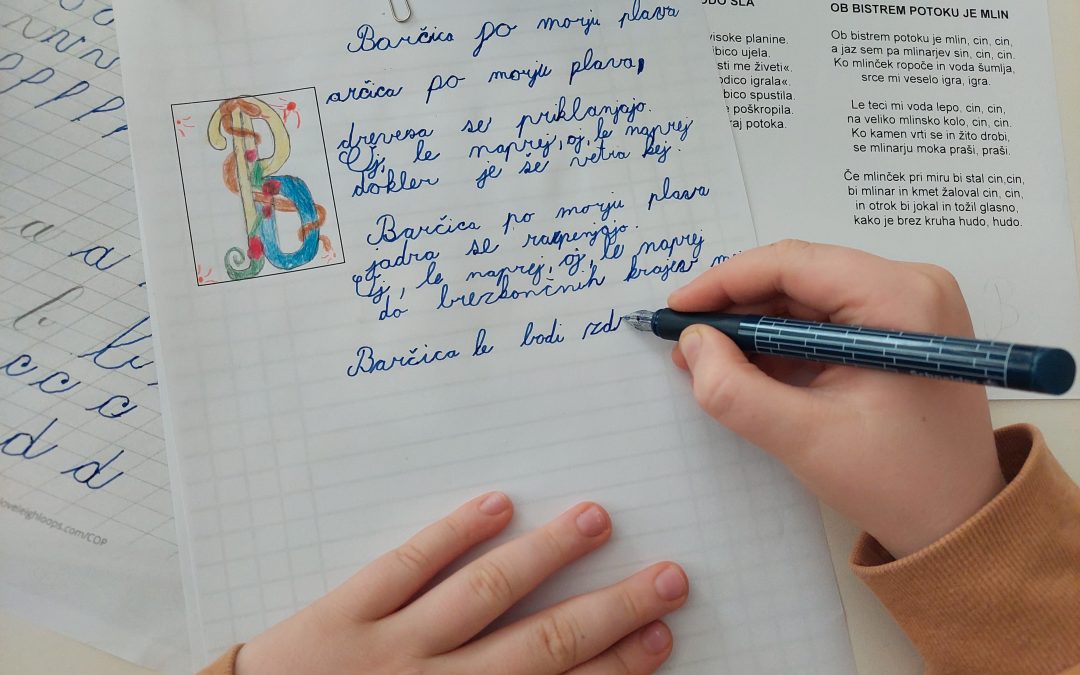 Barčica po morju plava
arčica po morju plava,
drevesa se priklanjajo.
Oj, le naprej, oj, le naprej
dokler je še vetra kej.
Barčica po morju plava
jadra se razpenjajo.
Oj, le naprej, oj, le naprej
do brezkončnih krajev
Barčica le bodi zdr
B
ŠLA
visoke planine.
ibico ujela.
sti me živeti«.
odico igrala«.
bico spustila.
poškropila.
raj potoka.
OB BISTREM POTOKU JE MLIN
Ob bistrem potoku je mlin, cin, cin,
a jaz sem pa mlinarjev sin, cin, cin.
Ko mlinček ropoče in voda šumlja,
srce mi veselo igra, igra.
Le teci mi voda lepo, cin, cin,
na veliko mlinsko kolo, cin, cin.
Ko kamen vrti se in žito drobi,
se mlinarju moka praši, praši.
Če mlinček pri miru bi stal cin,cin,
bi mlinar in kmet žaloval cin, cin,
in otrok bi jokal in tožil glasno,
kako je brez kruha hudo, hudo.
n n n
p p p p
a a
b b
c c c
d d
loveleighloops.com/CDP